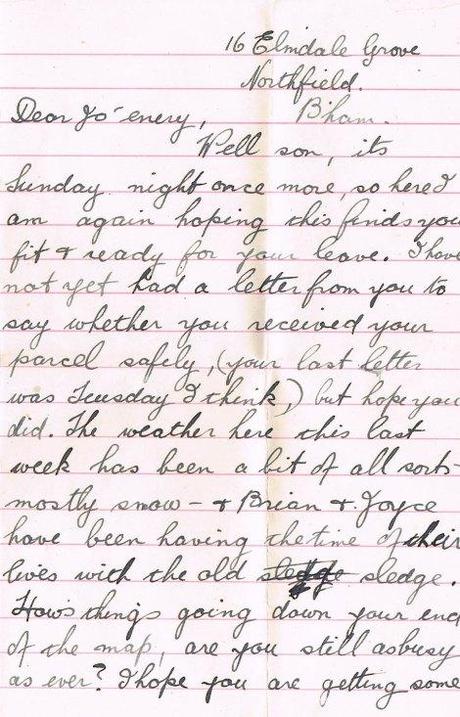 16 Elmdale Grove
Northfield.
B'ham.
Dear Jo-enery,
Well son, its
Sunday night once more, so here I
am again hoping this finds you
fit & ready for your leave. I have
not yet had a letter from you to
say whether you received your
parcel safely, (your last letter
was Tuesday I think) but hope you
did. The weather here this last
week has been a bit of all sorts-
mostly snow - & Brian & Joyce
have been having the time of their
lives with the old sledge sledge.
How's things going down your end
of the map, are you still as busy
as ever? I hope you are getting some